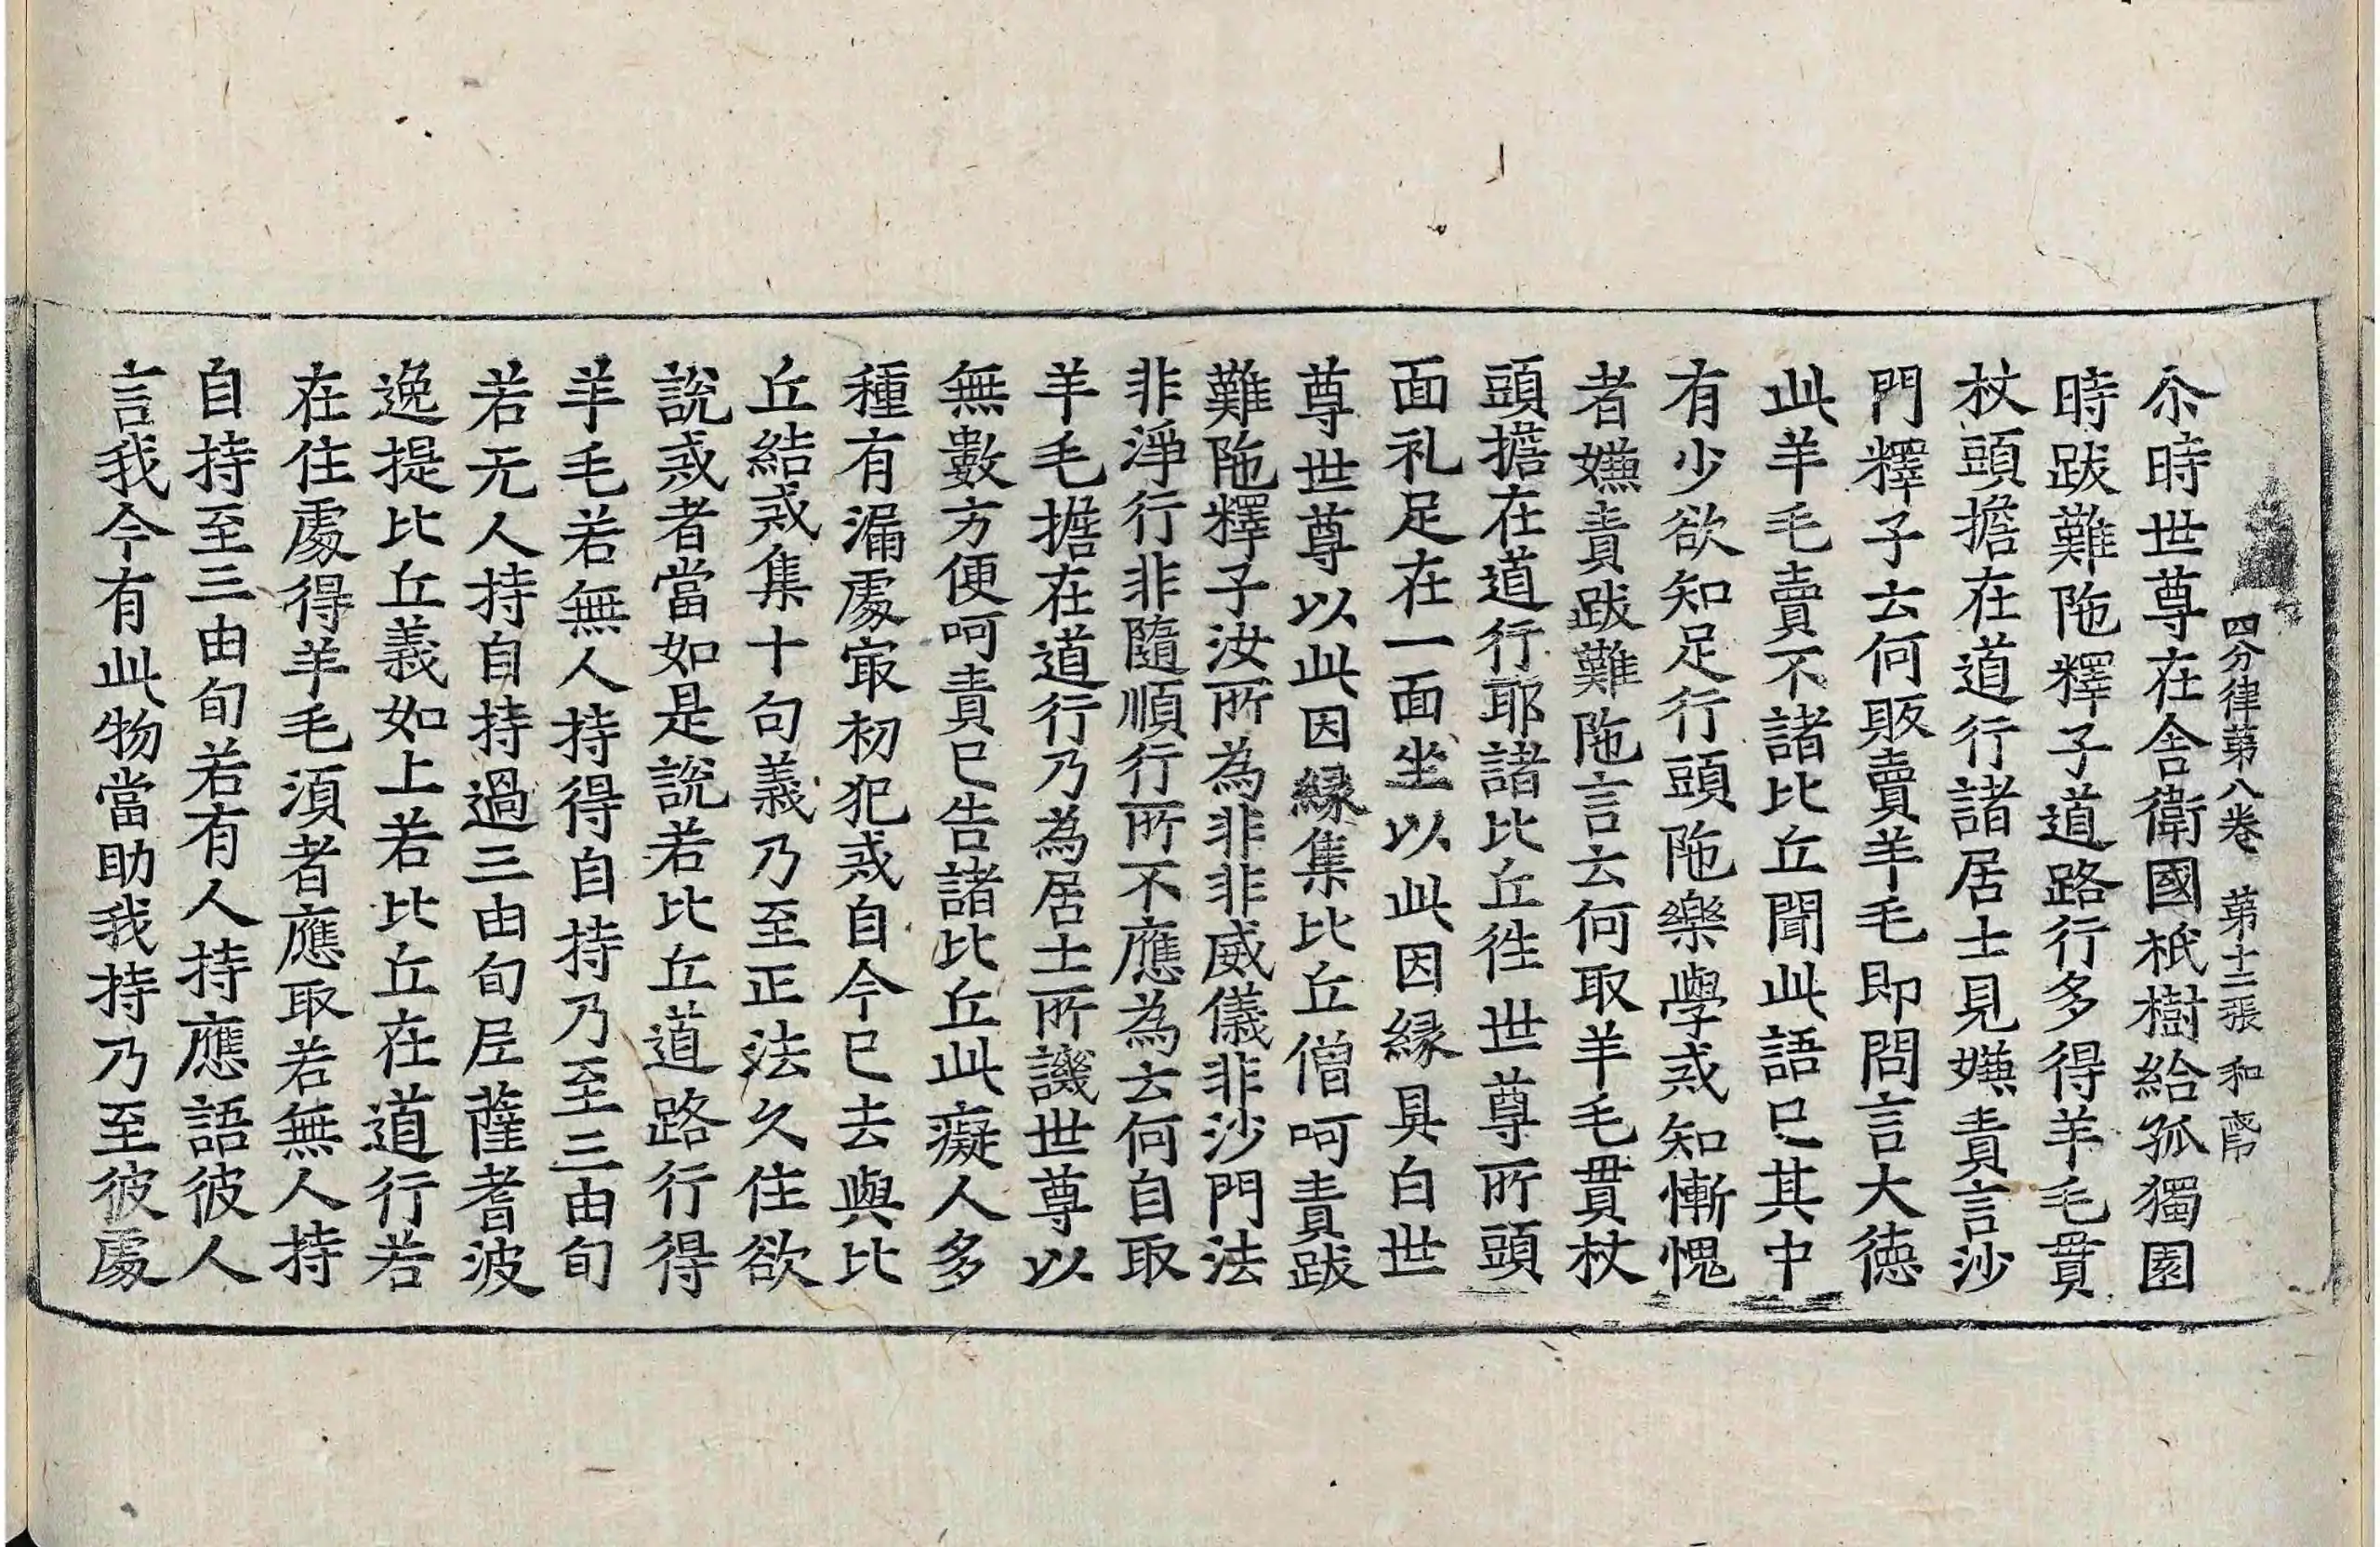 四分律苐八卷 苐十二張 和
尒時世尊在舍衛國祇樹給孤獨園
時跋難陁釋子道路行多得羊毛貫
杖頭擔在道行諸居士見嫌責言沙
門釋子云何販賣羊毛即問言大德
此羊毛賣不諸比丘聞此語已其中
有少欲知足行頭陁樂學戒知慚愧
者嫌責跋難陁言云何取羊毛貫杖
頭擔在道行耶諸比丘徃世尊所頭
面礼足在一面坐以此因縁具白世
尊世尊以此因縁集比丘僧呵責跋
難陁釋子汝所為非非威儀非沙門法
非淨行非隨順行所不應為云何自取
羊毛擔在道行乃為居士所譏世尊以
無數方便呵責已告諸比丘此癡人多
種有漏處㝡初犯戒自今已去與比
丘結戒集十句義乃至正法久住欲
說戒者當如是說若比丘道路行得
羊毛若無人持得自持乃至三由旬
若无人持自持過三由旬尼薩耆波
逸提比丘義如上若比丘在道行若
在住處得羊毛湏者應取若無人持
自持至三由旬若有人持應語彼人
言我今有此物當助我持乃至彼處